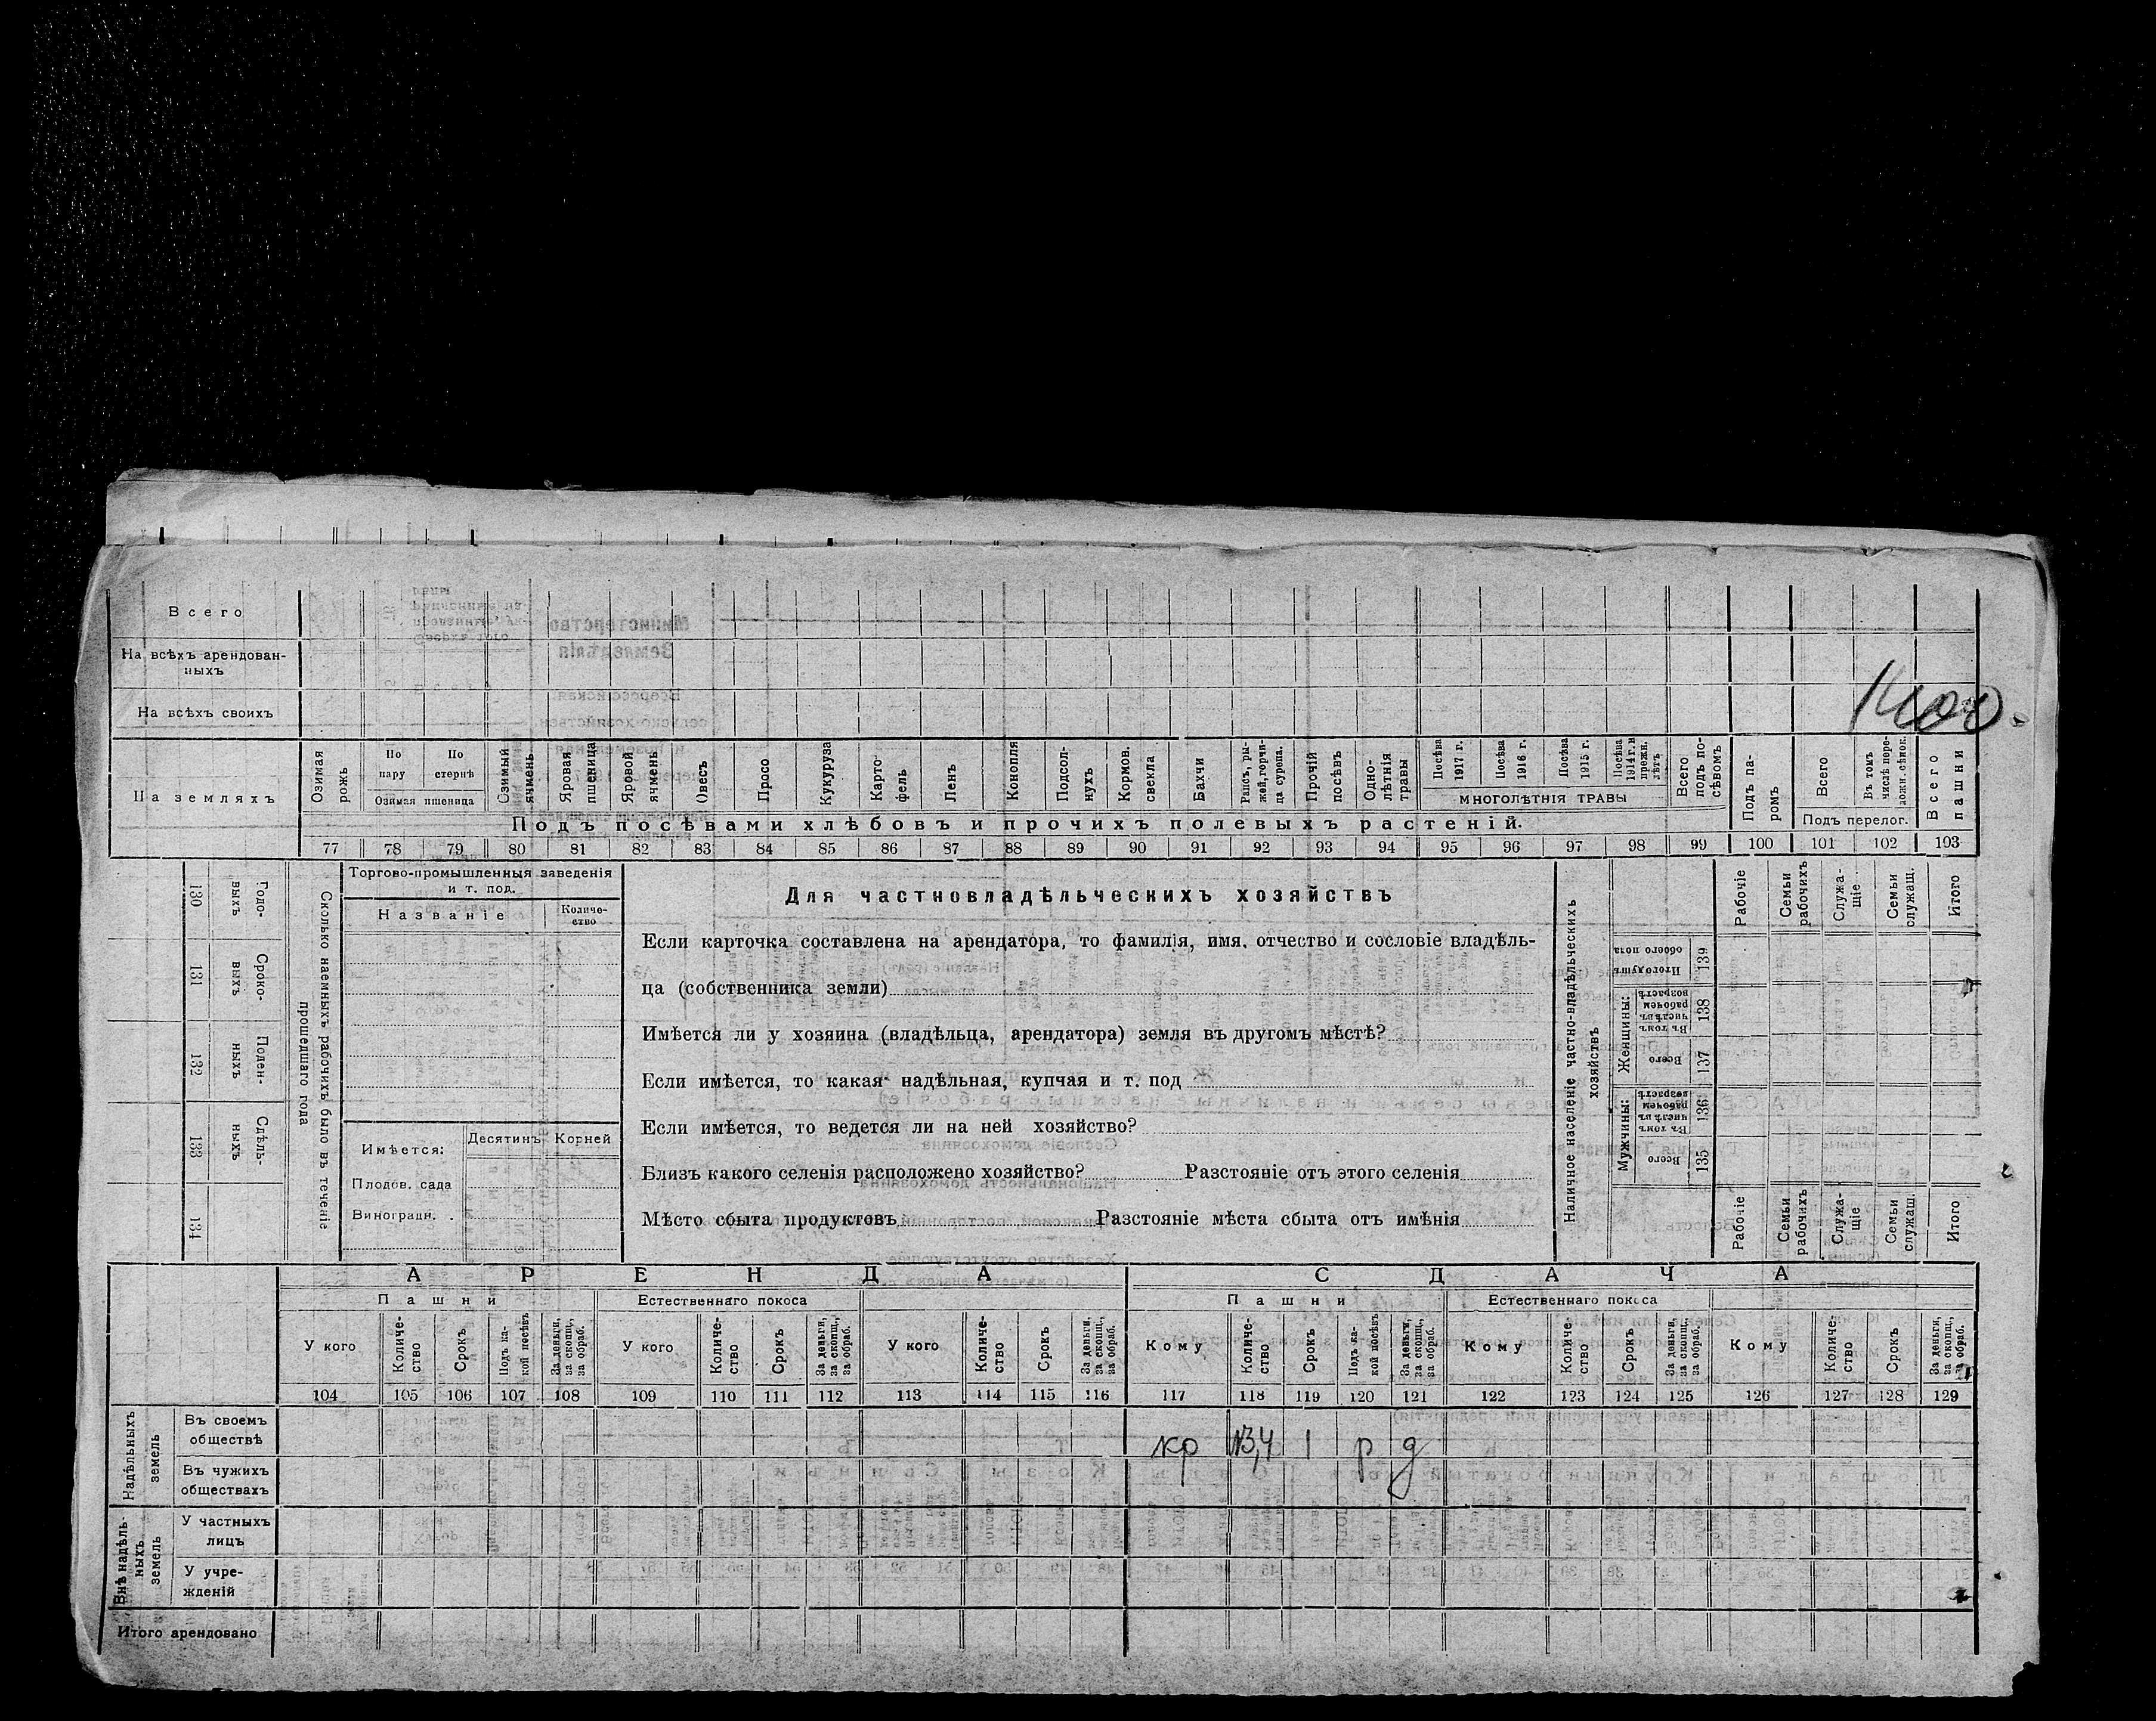 Всего
На всѣхъ арендован-
ныхъ
На всѣхъ своихъ
На земляхъ
Озимая рожь
По пару
По стернѣ
Озимая пшеница
Озимый ячмень
Яровая пшеница
Яровой ячмень
Овесъ
Просо
Кукуруза
Карто-
фель
Ленъ
Конопля
Подсол-
нухъ
Кормов. свекла
Бахчи
Рапсъ, ры-
жей, горчи-
ца сурепа.
Прочій посѣвъ
Одно-
лѣтнія травы
Посѣва 1917 г.
Посѣва 1916 г.
Посѣва 1915 г.
Посѣва 1914 г. и прежн. лѣтъ
МНОГОЛѢТНІЯ ТРАВЫ
Всего подъ по-
сѣвомъ
Подъ па-
ромъ
Всего
Въ томъ числѣ пере-
ложн. сѣнок.
Подъ перелог.
Всего пашни
Подъ посѣвами хлѣбовъ и прочихъ полевыхъ растеній.
77 78 79 80 81 82 83 84 85 86 87 88 89 90 91 92 93 94 95 96 97 98 99 100 101 102 103
130 Годо-
выхъ
131 Сроко-
выхъ
132 Поден-
ныхъ
133 Сдѣль-
ныхъ
134
Сколько наемныхъ рабочихъ было въ теченіе
прошедшаго года
Торгово-промышленныя заведенія
и т. под.
Названіе
Количе-
ство
Имѣется:
Десятинъ
Корней
Плодов. сада
Виноградн. .
Для частновладѣльческихъ хозяйствъ
Если карточка составлена на арендатора, то фамилія, имя, отчество и сословіе владѣль-
ца (собственника земли)
Имѣется ли у хозяина (владѣльца, арендатора) земля въ другомъ мѣстѣ?
Если имѣется, то какая: надѣльная, купчая и т. под
Если имѣется, то ведется ли на ней хозяйство?
Близъ какого селенія расположено хозяйство? Разстояніе отъ этого селенія
Мѣсто сбыта продуктовъ Разстояніе мѣста сбыта отъ имѣнія
Наличное населеніе частно-владѣльческихъ
хозяйствъ
Рабочіе
Семьи рабочихъ
Служа-
щіе
Семьи служащ.
Итого
Итого душъ обоего пола 139
Женщины:
Въ томъ числѣ въ рабочемъ возрастѣ 138
Всего 137
Мужчины:
Въ томъ числѣ въ рабочемъ возрастѣ 136
Всего 135
Рабочіе
Семьи рабочихъ
Служа-
щіе
Семьи служащ.
Итого
АРЕНДА
СДАЧА
Пашни
Естественнаго покоса
Пашни
Естественнаго покоса
У кого
Количе-
ство
Срокъ
Подъ ка-
кой посѣвъ
За деньги, за скопщ., за обраб.
У кого
Количе-
ство
Срокъ
За деньги, за скопщ., за обраб.
У кого
Количе-
ство
Срокъ
За деньги, за скопщ., за обраб.
Кому
Количе-
ство
Срокъ
Подъ ка-
кой посѣвъ
За деньги, за скопщ., за обраб.
Кому
Количе-
ство
Срокъ
За деньги, за скопщ., за обраб.
Кому
Количе-
ство
Срокъ
За деньги, за скопщ., за обраб.
104 105 106 107 108 109 110 111 112 113 114 115 116 117 118 119 120 121 122 123 124 125 126 127 128 129
Надѣльныхъ земель
Въ своемъ
обществѣ
кр 3,4 1 р д
Въ чужихъ
обществахъ
Внѣ надѣль-
ныхъ земель
У частныхъ
лицъ
У учре-
жденій
Итого арендовано